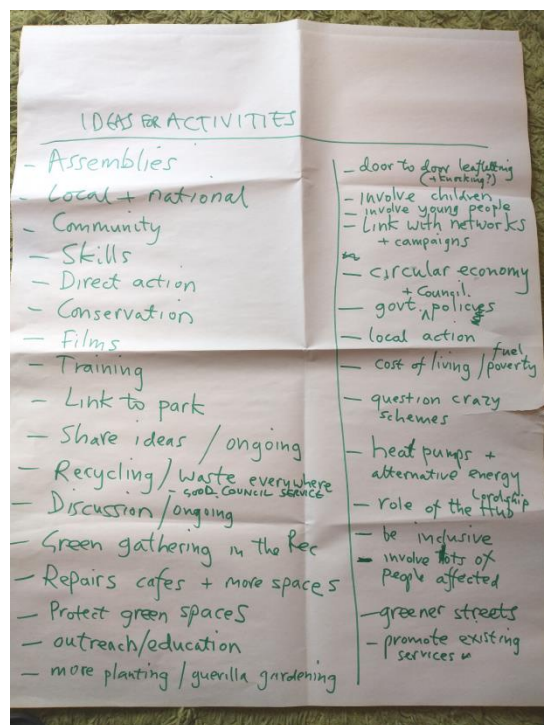 IDEAS FOR ACTIVITIES
- Assemblies
- Local + national
- Community
- Skills
- Direct action
- Conservation
- Films
- Training
- Link to park
- Share ideas / ongoing
- Recycling / waste everywhere
- GOOD COUNCIL SERVICE
- Discussion / ongoing
- Green gathering in the Rec
- Repairs cafes + more spaces
- Protect green spaces
- outreach/education
- more planting / guerilla gardening
- door to door leafletting
(+ knocking?)
- involve children
- involve young people
- Link with networks
+ campaigns
- circular economy
+ Council.
- govt ^ policies
- local action
- cost of living / fuel
poverty
- question crazy
schemes
- heat pumps +
alternative energy
- role of the Lordship
Hub
- be inclusive
- involve lots of
people affected
- greener streets
- promote existing
services